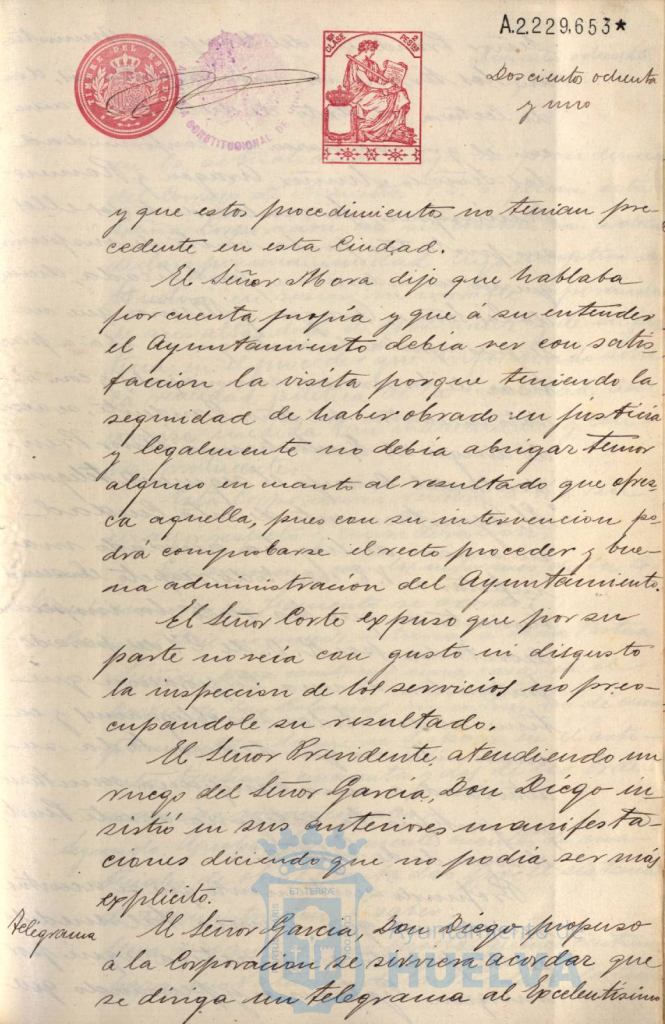 A.2.229,653*
TIMBRE DEL ESTADO
CONSTITUCIONAL DE
CLASE
PESETAS
Doscientos ochenta
y uno
y que estos procedimientos no tenian pre-
cedente en esta Ciudad.
El Señor Mora dijo que hablaba
por cuenta propia y que á su entender
el Ayuntamiento debia ver con satis-
faccion la visita porque teniendo la
seguridad de haber obrado en justicia
y legalmente no debia abrigar temor
alguno en cuanto al resultado que ofrez-
ca aquella, pues con su intervencion po-
drá comprobarse el recto proceder y bue-
na administración del Ayuntamiento.
El Señor Corte expuso que por su
parte no veia con gusto ni disgusto
la inspeccion de los servicios no preo-
cupandole su resultado.
El Señor Presidente, atendiendo un
ruego del Señor García, Don Diego in-
sistió en sus anteriores manifesta-
ciones diciendo que no podia ser más
explicito.
Telégrama
El Señor García, Don Diego propuso
á la Corporacion se sirviera acordar que
se dirija un telegrama al Excelentísimo
ET TERRÆ
Ayuntamiento de
HUELVA